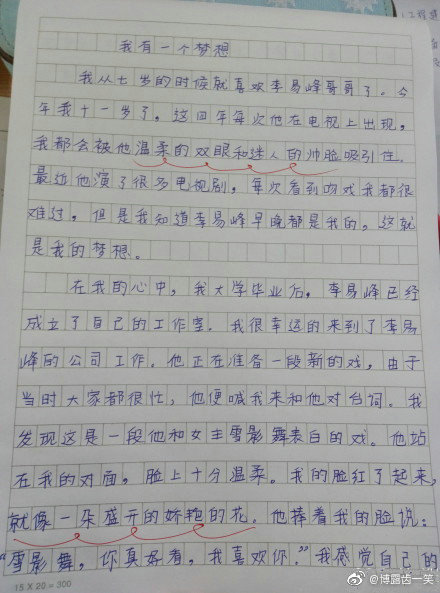 我有一个梦想
我从七岁的时候就喜欢李易峰哥哥了。今
年我十一岁了，这四年每次他在电视上出现，
我都会被他温柔的双眼和迷人的帅脸吸引住。
最近他演了很多电视剧，每次看到吻戏我都很
难过，但是我知道李易峰早晚都是我的，这就
是我的梦想。
在我的心中，我大学毕业后，李易峰已经
成立了自己的工作室。我很幸运的来到了李易
峰的公司工作。他正在准备一段新的戏，由于
当时大家都很忙，他便喊我来和他对台词。我
发现这是一段他和女主雪影舞表白的戏。他站
在我的对面，脸上十分温柔。我的脸红了起来，
就像一朵盛开的娇艳的花。他捧着我的脸说：
“雪影舞，你真好看，我喜欢你。”我感觉自己的
15 X 20 = 300
@博圆齿一笑